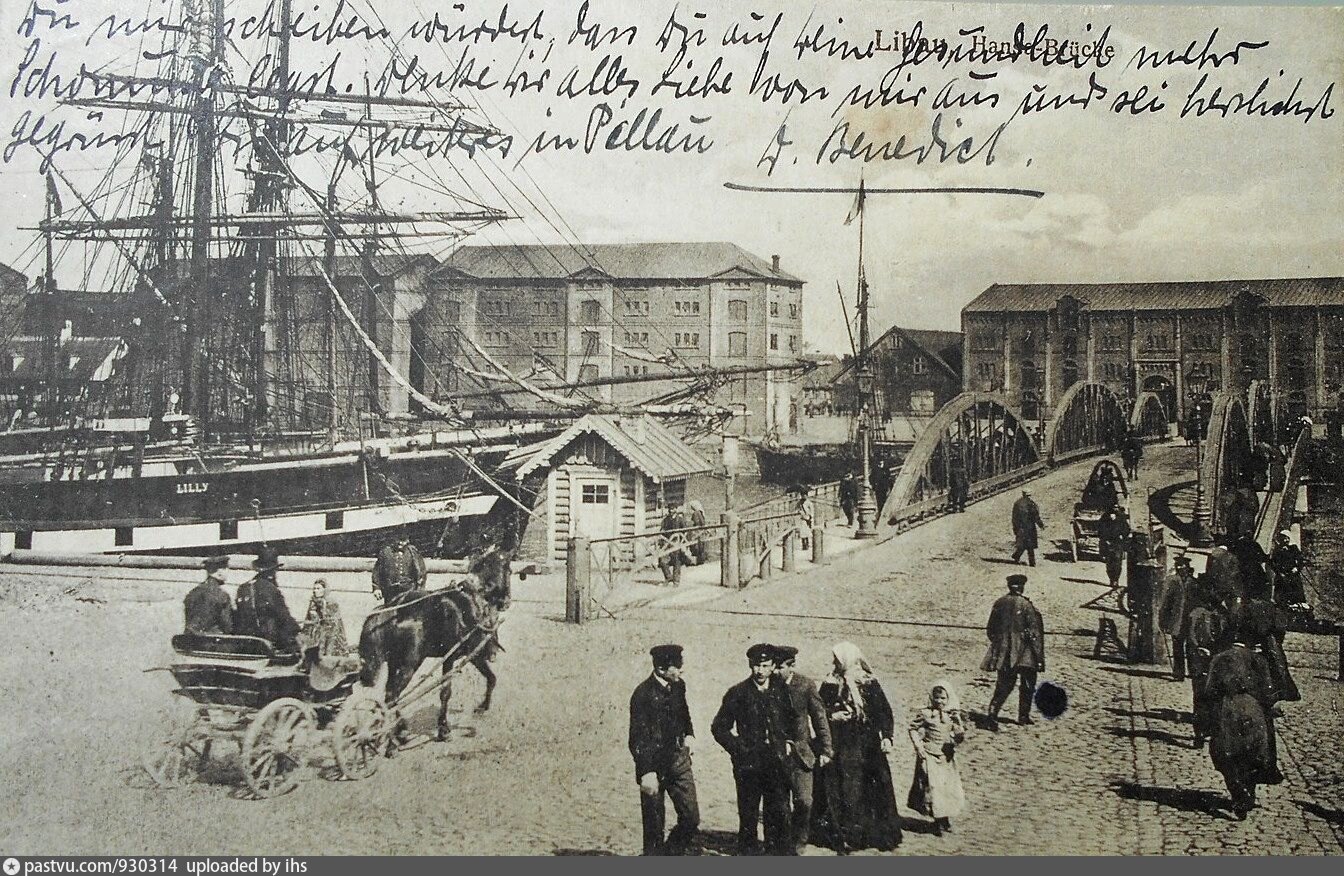 Du mir schreiben würdest, dass Du auf Deine Gesundheit mehr
Libau, Hansa-Brücke
Schonung legst. Denke Dir alles Liebe von mir aus und sei herzlichst
gegrüsst bis auf weiteres in Pillau D. Benedict.
LILLY
pastvu.com/930314 uploaded by ihs